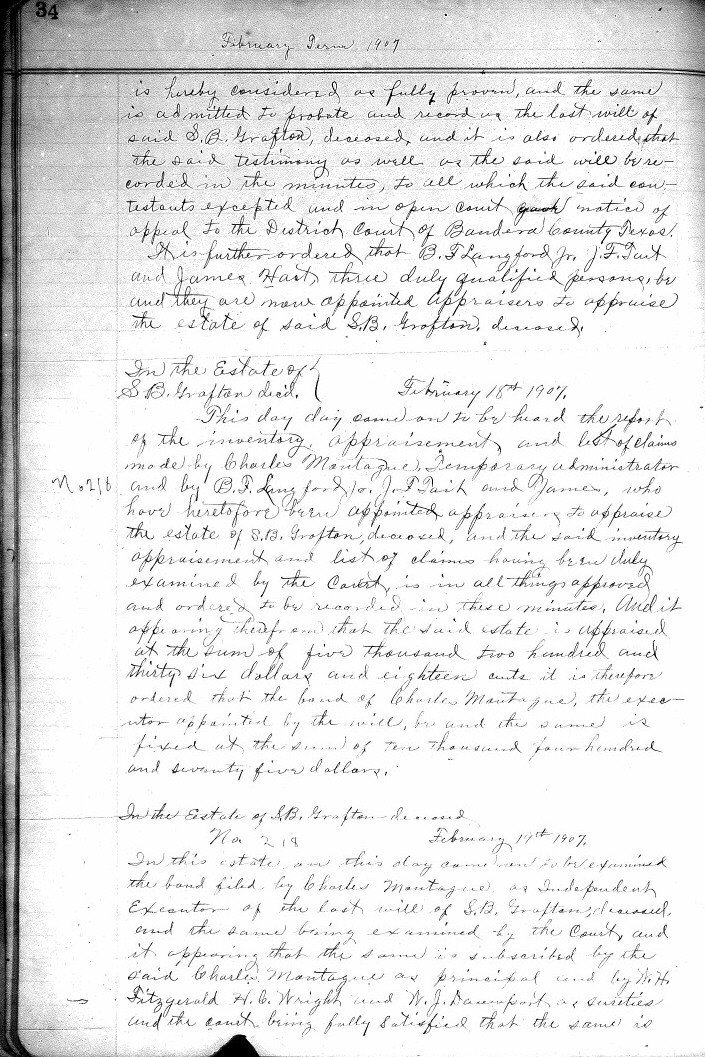 34
February Term 1907
is hereby considered as fully proven, and the same
is admitted to probate and record as the last will of
said S.B. Grafton, deceased, and it is also ordered that
the said testimony as well as the said will be re-
corded in the minutes, to all which the said con-
testants excepted and in open court notice of
appeal to the District Court of Bandera County Texas.
It is further ordered that B.F Langford Jr. J.F. Tait
and James Hart, three duly qualified persons, be
and they are now appointed appraisers to appraise
the estate of said S.B. Grafton, deceased,
In the Estate of
S B. Grafton decd. February 18th 1907.
This day day came on to be heard the report
of the inventory, appraisement, and list of claims
made by Charles Montague, Temporary administrator
No 216 and by B.F. Langford Jr. J.F. Tait and James, who
have heretofore been appointed appraisers to appraise
the estate of S.B. Grafton, deceased, and the said inventory
appraisement and list of claims having been duly
examined by the Court, is in all things approved
and ordered to be recorded in these minutes. And it
appearing therefrom that the said estate is appraised
at the sum of five thousand two hundred and
thirty six dollars and eighteen cents it is therefore
ordered that the bond of Charles Montague, the exec-
utor appointed by the will, be and the same is
fixed at the sum of ten thousand four hundred
and seventy five dollars.
In the Estate of S.B. Grafton deceased
No. February 19th 1907.
In this estate on this day came on to be examined
the bond filed by Charles Montague as Independent
Executor of the last will of S.B. Grafton, deceased,
and the same being examined by the Court, and
it appearing that the same is subscribed by the
said Charles Montague as principal and by W.H.
Fitzgerald H.C. Wright and W.J. Davenport as sureties
and the court being fully satisfied that the same is